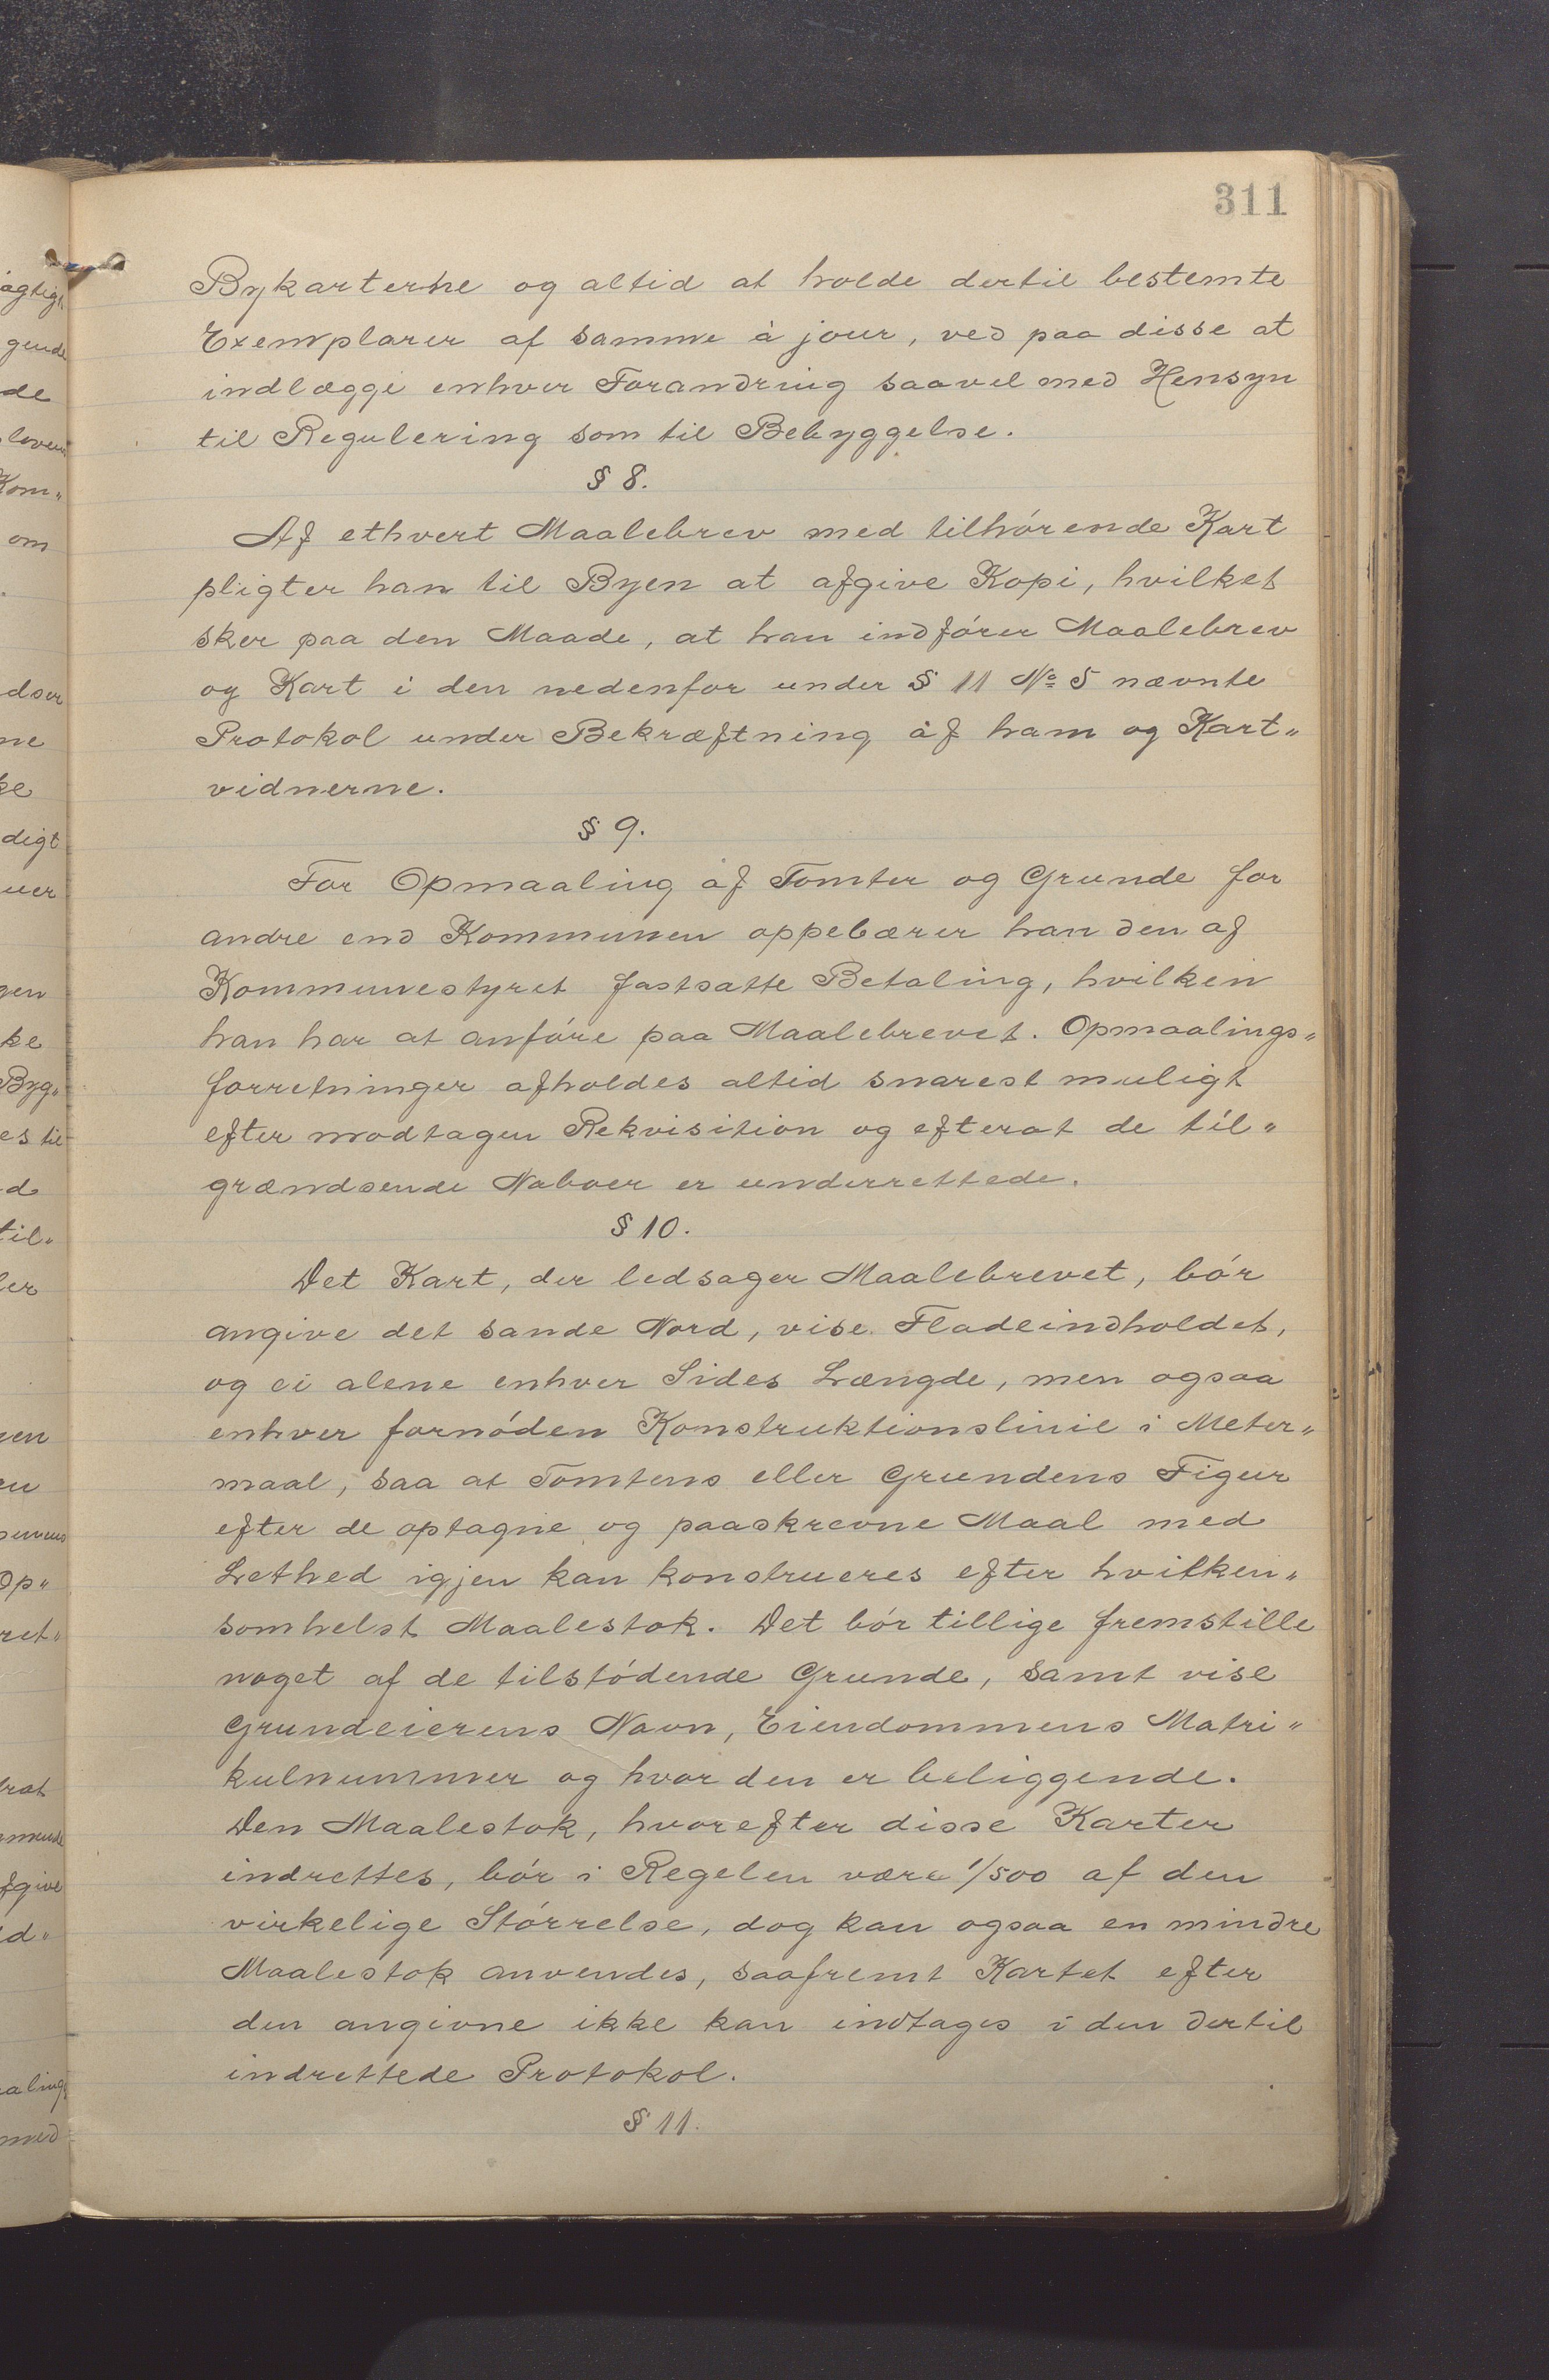 311
Bykarterne og altid at holde dertil bestemte
Exemplarer af samme à jour, ved paa disse at
indlægge enhver Forandring saavel med Hensyn
til Regulering som til Bebyggelse.
§ 8.
Af ethvert Maalebrev med tilhørende Kart
pligter han til Byen at afgive Kopi, hvilket
sker paa den Maade, at han indfører Maalebrev
og Kart i den nedenfor under § 11 No 5 nævnte
Protokol under Bekræftning af ham og Kart„
vidnerne.
§ 9.
For Opmaaling af Tomter og Grunde for
andre end Kommunen oppebærer han den af
Kommunestyret fastsatte Betaling, hvilken
han har at anføre paa Maalebrevet. Opmaalings„
forretninger afholdes altid snarest muligt
efter modtagen Rekvisition og efterat de til„
grændsende Naboer er underrettede.
§ 10.
Det Kart, der ledsager Maalebrevet, bør
angive det sande Nord, vise Fladeindholdet,
og ei alene enhver Sides Længde, men ogsaa
enhver fornøden Konstruktionslinie i Meter„
maal, saa at Tomtens eller Grundens Figur
efter de optagne og paaskrevne Maal med
Lethed igjen kan konstrueres efter hvilken„
somhelst Maalestok. Det bør tillige fremstille
noget af de tilstødende Grunde, samt vise
Grundeierens Navn, Eiendommens Matri„
kulnummer og hvor den er beliggende.
Den Maalestok, hvorefter disse Karter
indrettes, bør i Regelen være 1/500 af den
virkelige Størrelse, dog kan ogsaa en mindre
Maalestok anvendes, saafremt Kartet efter
den angivne ikke kan indtages i den dertil
indrettede Protokol.
§ 11.